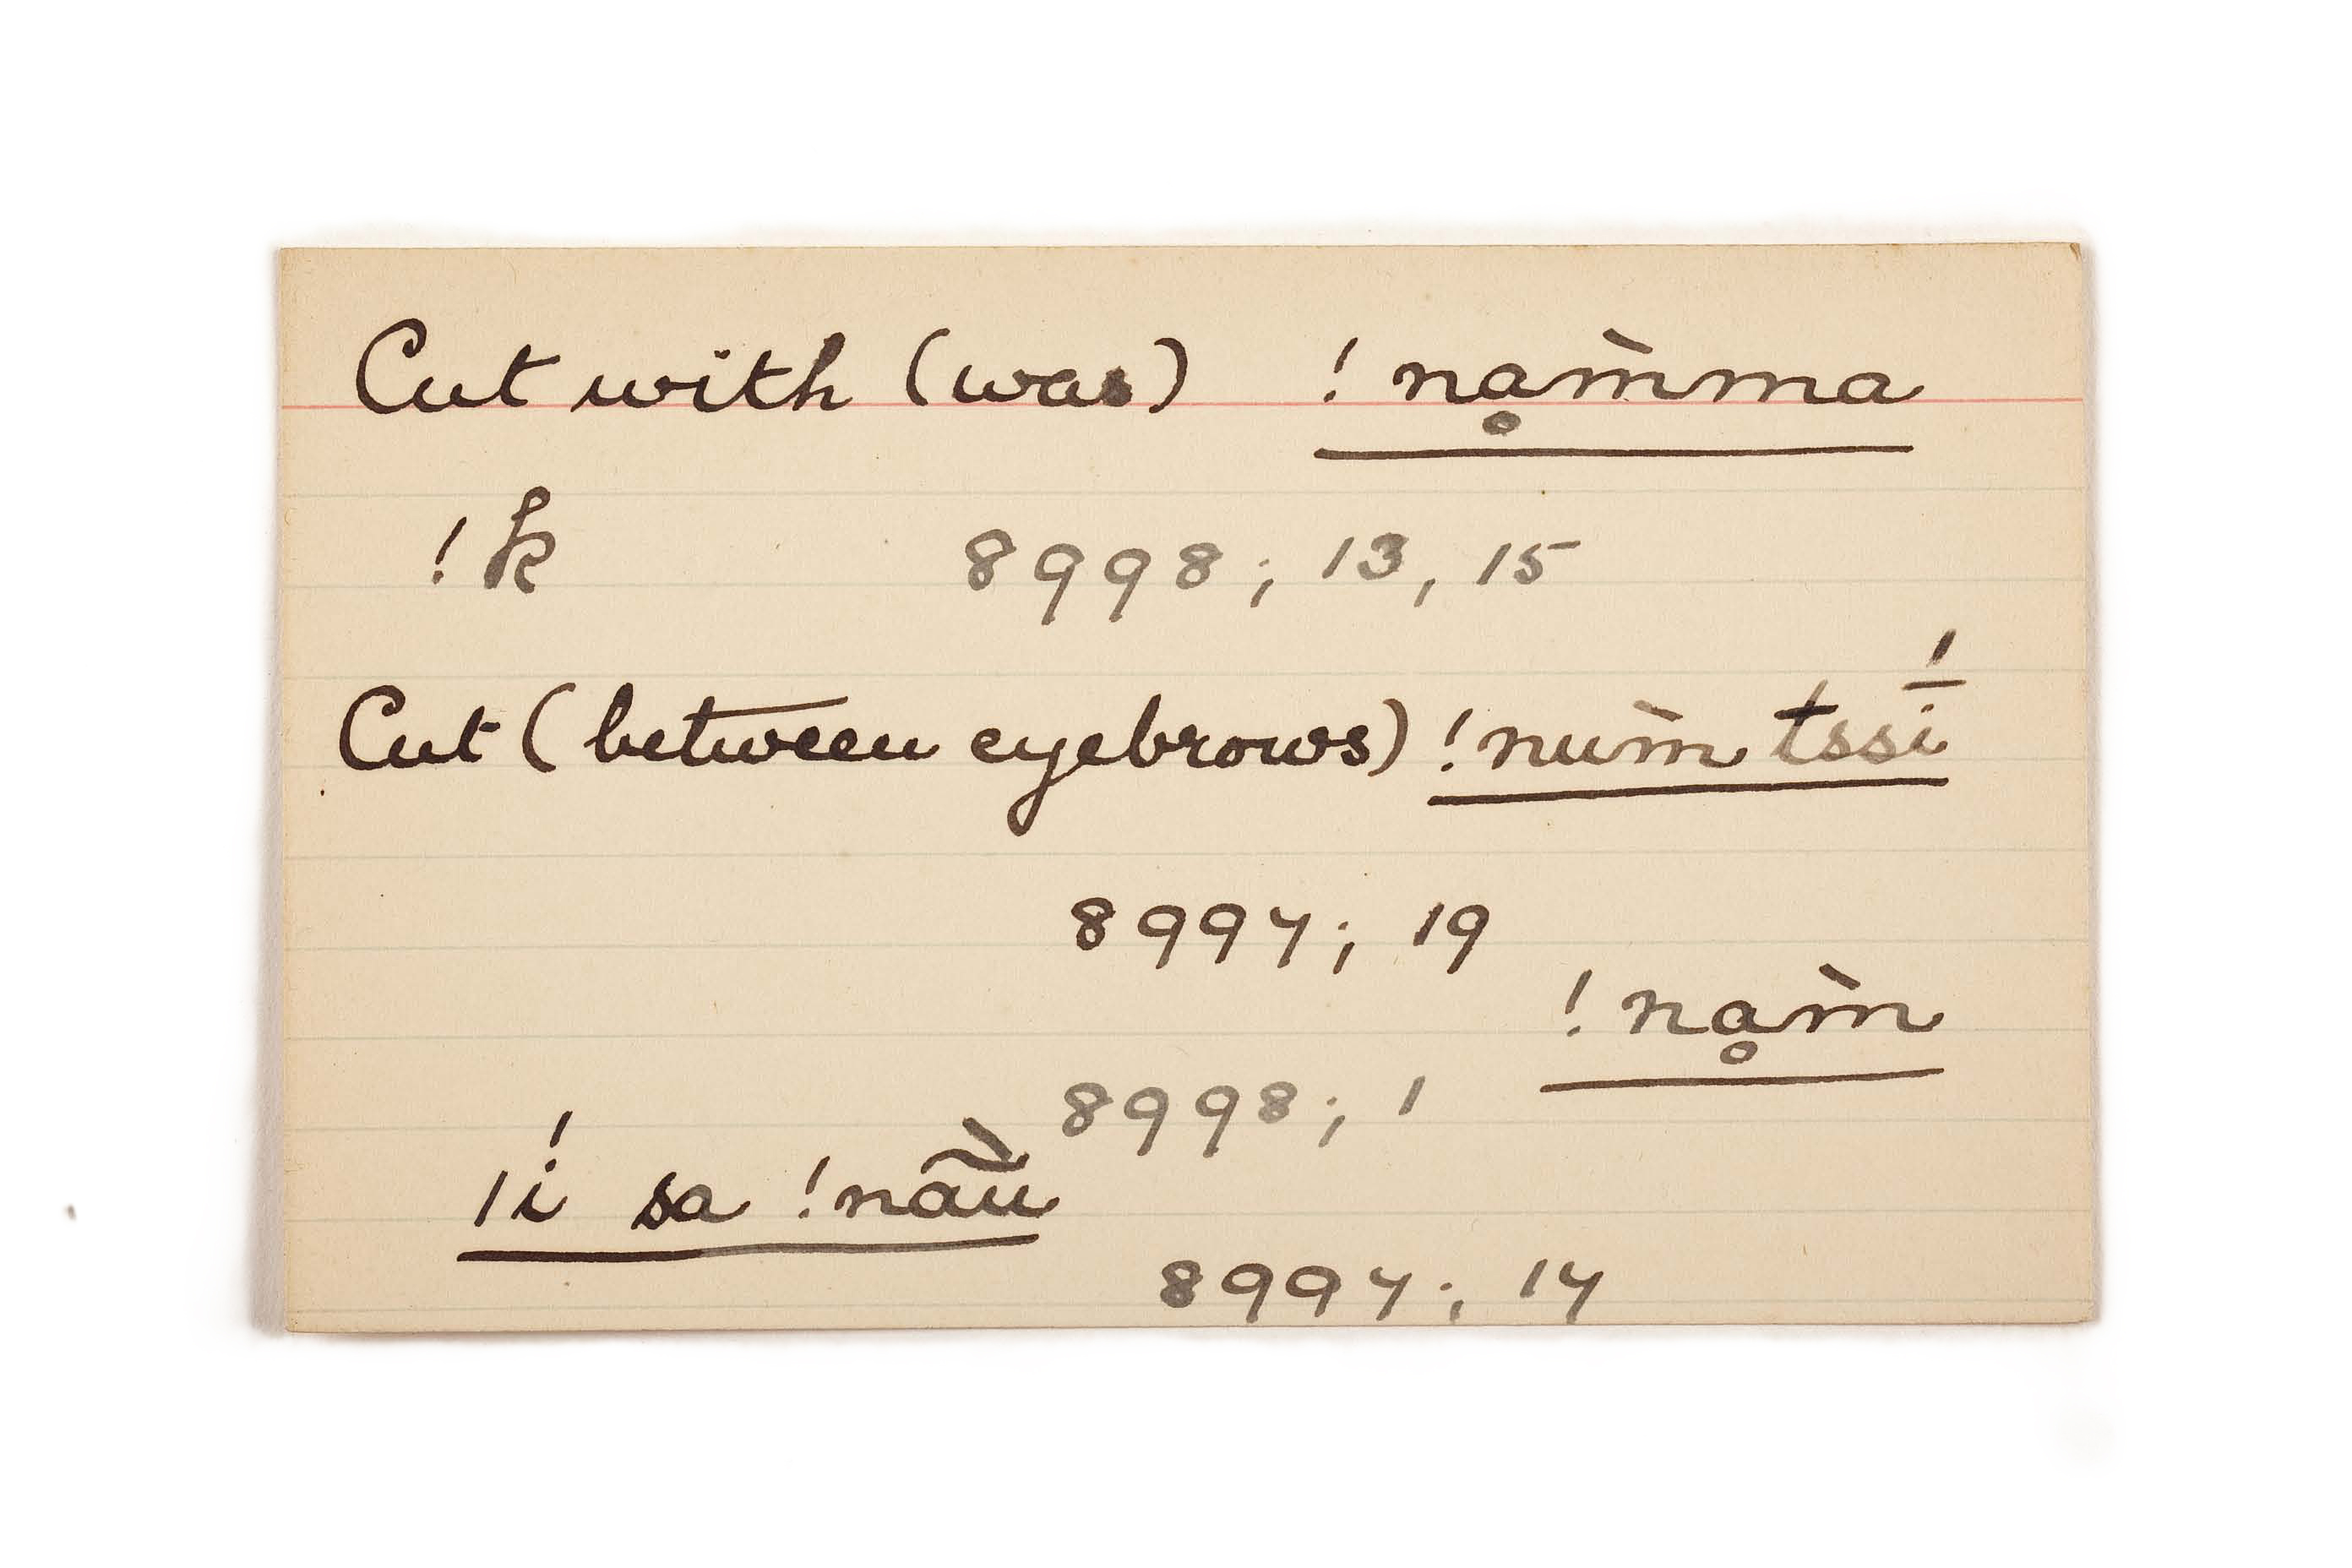 Cut with (was) !nḁm̀ma
!k 8998; 13, 15
Cut (between eyebrows) !num̀ tssī́
8997; 19
!nḁm̀
8998; 1
|í sa !nāù
8997; 17